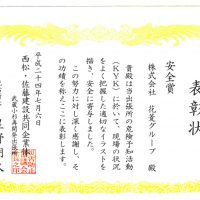 表彰状
安全賞
株式会社 花菱グループ 殿
貴殿は当出張所の危険予知活動
(KYK)に於いて、現場の状況
をよく把握した適切なイラストを
描き、安全に寄与しました。
この努力に対し深く感謝し、そ
の功績を称えここに表彰します。
平成二十四年七月六日
西松・佐藤建設共同企業体